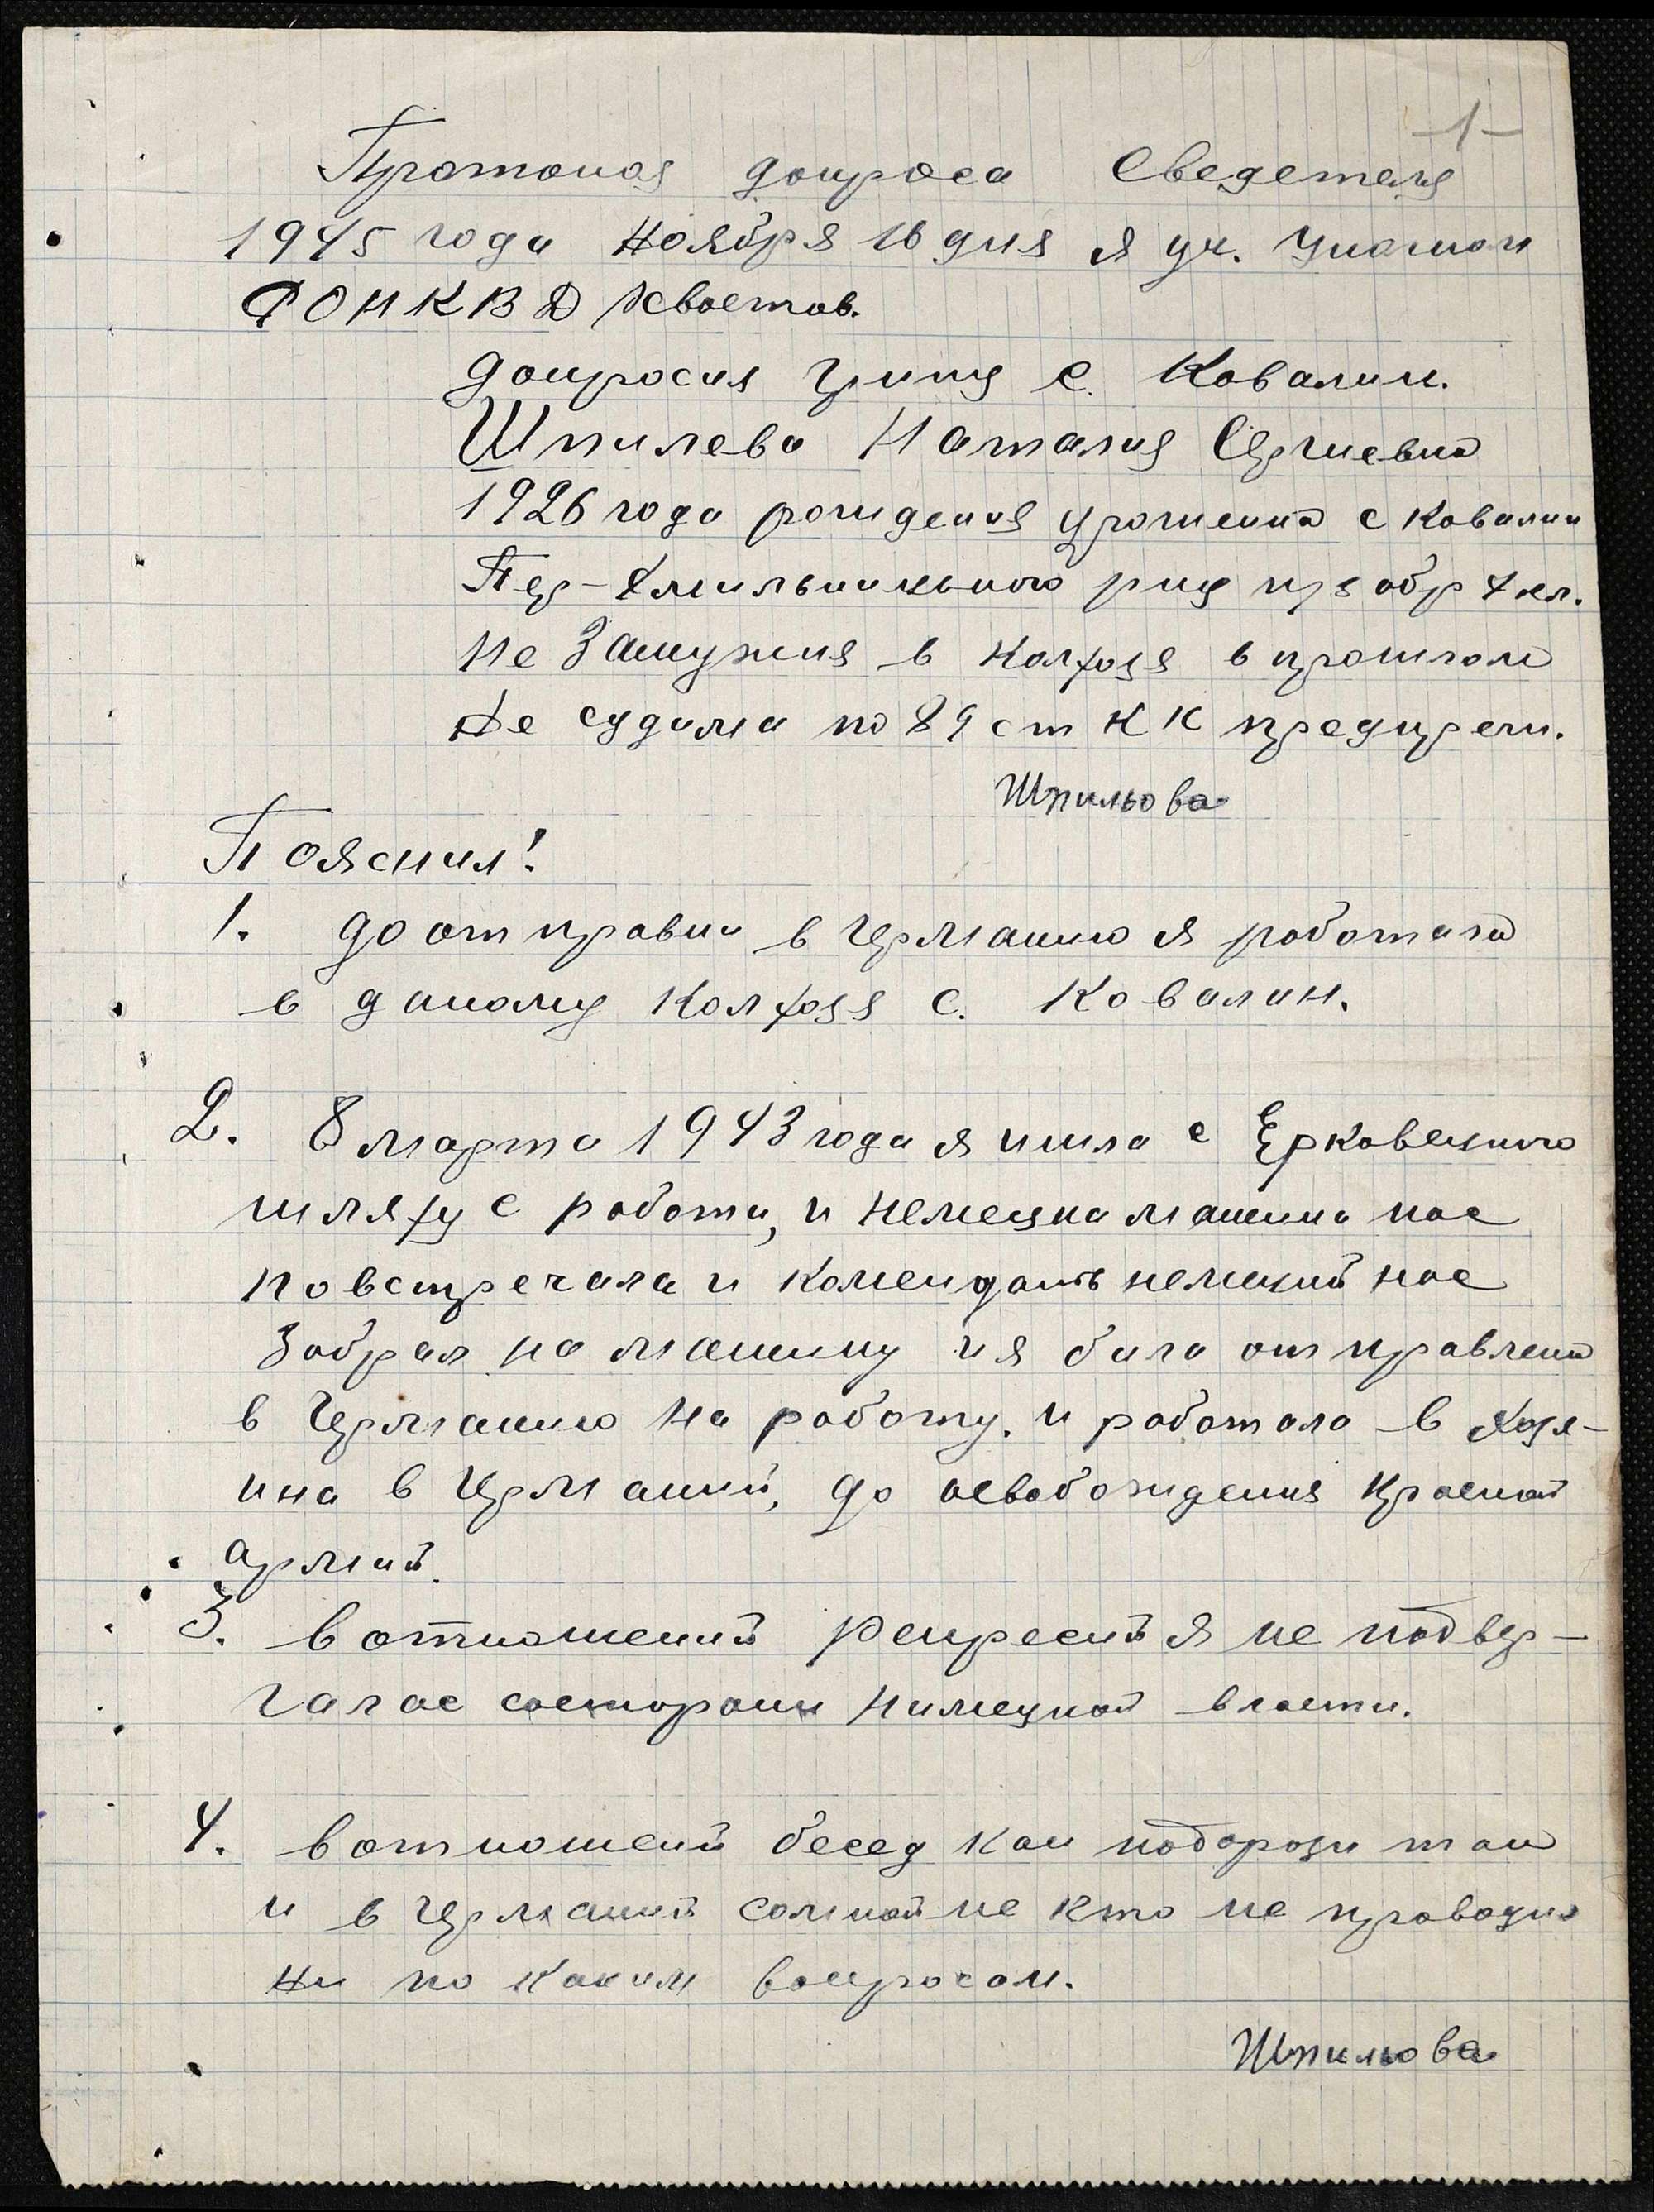 -1-
Протокол допроса Сведетеля
1945 года Ноября 16 дня я уч. уполном
РОНКВД Хвостов.
допросил гр-нку с. Ковалин.
Шпилева Наталия Сергиевна
1926 года рождения урожена с Ковалин
Пер-Хмильницького р-на обр 4 кл.
Не Замужня в колхозе в прошлом
Не судима по 89 ст КК предупреж.
Шпильова
Пояснил!
1. до отправки в Германию я работала
в даному колхозе с. Ковалин.
2. 8 марта 1943 года я ишла с Ерковецкого
шляху с работи, и немецка машина нас
повстречала и комендант немецкий нас
забрал на машину и я била отправлена
в Германию на работу. и работала в хозя-
ина в Германий, до освобождения Красной
армий.
3. в отношений Репресий я не подвер-
галас состорони Нимецкой власти.
4. в отношений бесед как подорози так
и в Германий сомной не кто не проводил
Ни по каким вопросам.
Шпильова